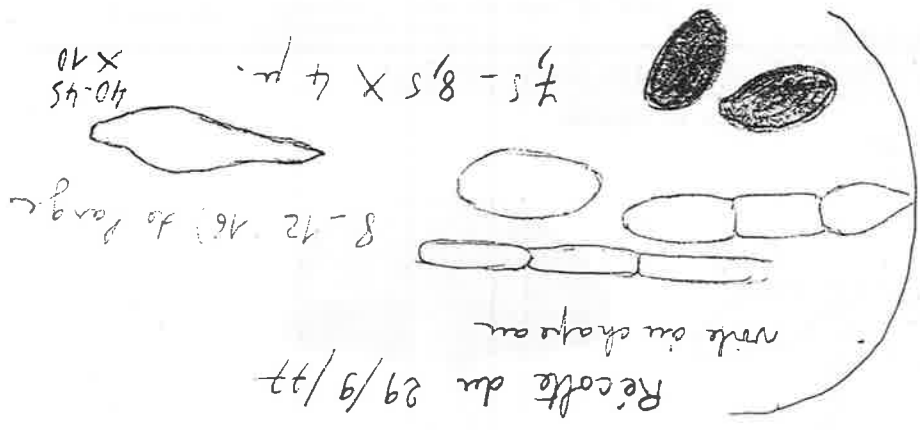 Récolte du 29/9/77
voile du chapeau
8-12 (16) de large
7,5 - 8,5 X 4 µ.
40-45
X 10